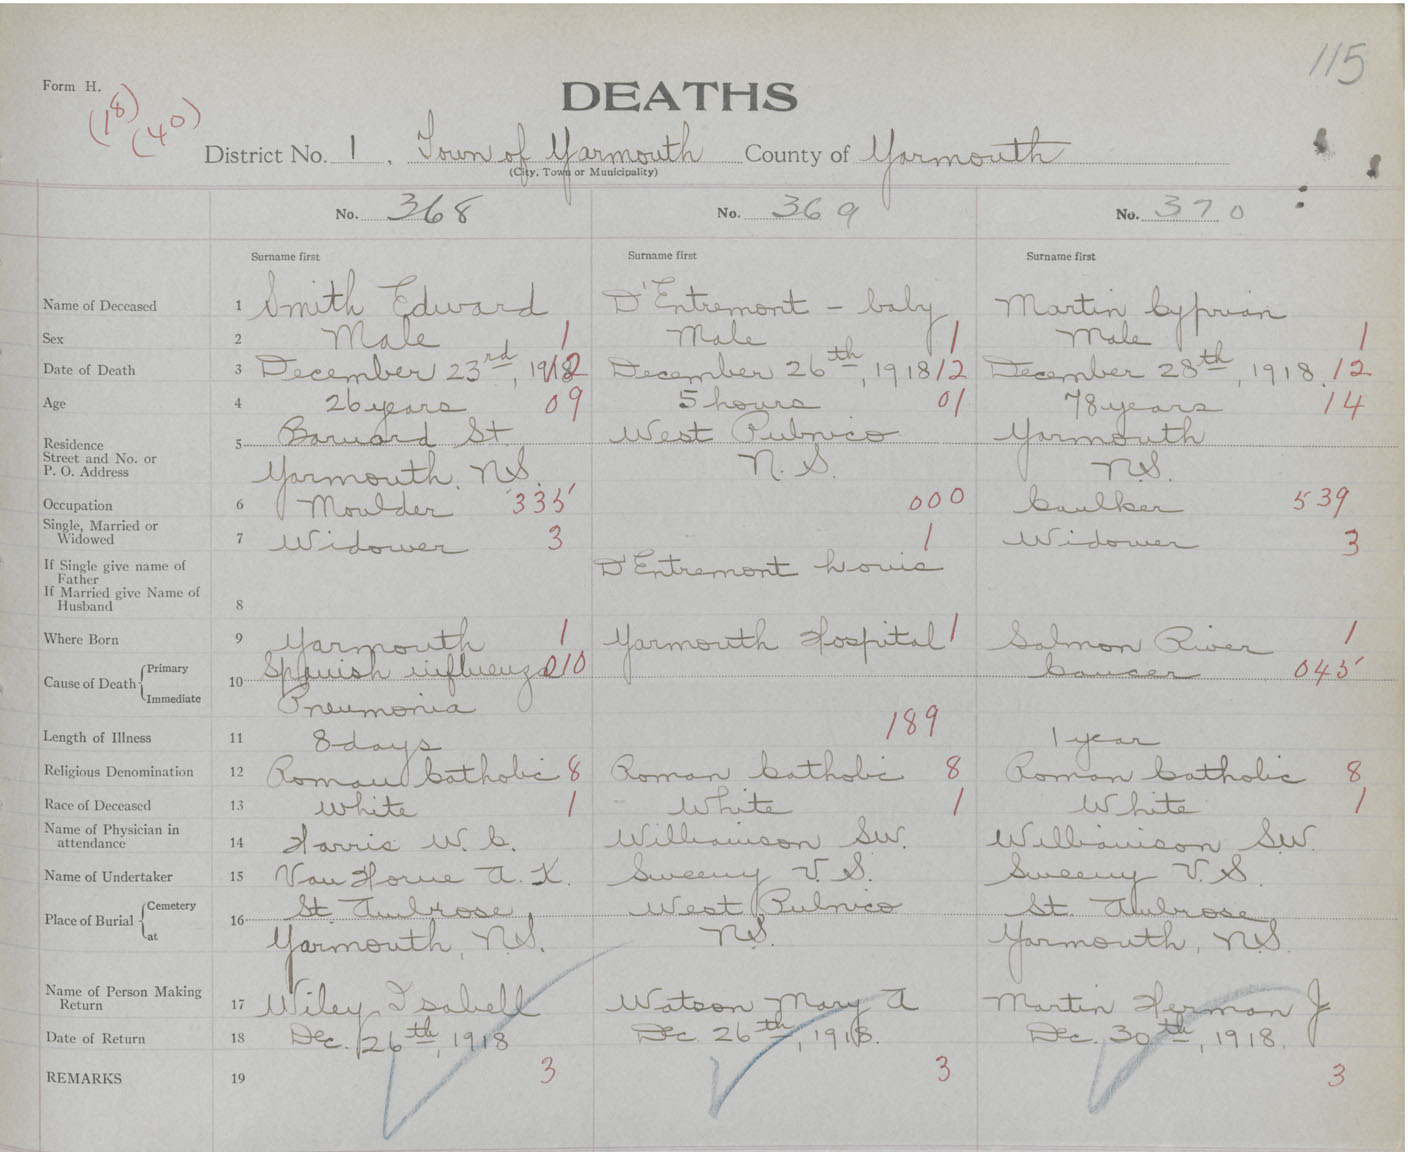 115
Form H.
(18)
(40)
DEATHS
District No. 1, Town of Yarmouth County of Yarmouth
(City, Town or Municipality)
No. 368 No. 369 No. 370
Surname first Surname first Surname first
Name of Deceased 1 Smith Edward D'Entremont - baby Martin Cyprian
Sex 2 Male 1 Male 1 Male 1
Date of Death 3 December 23rd, 1918 12 December 26th, 1918 12 December 28th, 1918. 12
Age 4 26 years 09 5 hours 01 78 years 14
Residence 5 Barnard St West Pubnico Yarmouth
Street and No. or
P. O. Address Yarmouth, N.S. N. S. N.S.
Occupation 6 Moulder 335 000 Caulker 539
Single, Married or
Widowed 7 Widower 3 1 Widower 3
If Single give name of
Father D'Entremont Louis
If Married give Name of
Husband 8
Where Born 9 Yarmouth 1 Yarmouth Hospital 1 Salmon River 1
Cause of Death Primary 10 Spanish influenza 010 Cancer 045
Immediate Pneumonia
Length of Illness 11 8 days 189 1 year
Religious Denomination 12 Roman Catholic 8 Roman Catholic 8 Roman Catholic 8
Race of Deceased 13 White 1 White 1 White 1
Name of Physician in
attendance 14 Harris W. C. Williamson S.W. Williamson S.W.
Name of Undertaker 15 Van Horne A. K. Sweeny V. S. Sweeny V. S.
Place of Burial Cemetery 16 St. Ambrose, West Pubnico St. Ambrose,
at Yarmouth, N.S. N.S. Yarmouth, N.S.
Name of Person Making
Return 17 Wiley Isabell Watson Mary A Martin Herman J
Date of Return 18 Dec. 26th, 1918 Dec. 26th, 1918. Dec. 30th, 1918.
REMARKS 19 3 3 3